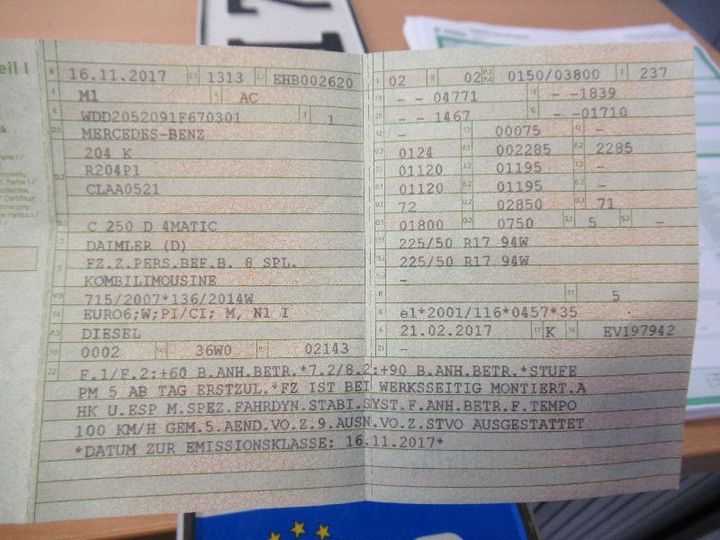 eil I
B 16.11.2017 2.1 1313 2.2 EHB002620
J M1 4 AC
E WDD2052091F670301 3 1
D.1 MERCEDES-BENZ
204 K
D.2 R204P1
CLAA0521
D.3 C 250 D 4MATIC
2 DAIMLER (D)
5 FZ.Z.PERS.BEF.B. 8 SPL.
KOMBILIMOUSINE
V.9 715/2007*136/2014W
14 EURO6;W;PI/CI; M, N1 I
P.3 DIESEL
10 0002 14.1 36W0 P.1 02143
L 02 9 02 P.2/P.4 0150/03800 T 237
18 - - 04771 19 - -1839
20 - - 1467 G - -01710
12 - 13 00075 Q -
V.7 0124 F.1 002285 F.2 2285
7.1 01120 7.2 01195 7.3 -
8.1 01120 8.2 01195 8.3 -
U.1 72 U.2 02850 U.3 71
O.1 01800 O.2 0750 S.1 5 S.2 -
15.1 225/50 R17 94W
15.2 225/50 R17 94W
15.3 -
R 11 5
K e1*2001/116*0457*35
6 21.02.2017 17 K 16 EV197942
21 -
22 F.1/F.2:+60 B.ANH.BETR.*7.2/8.2:+90 B.ANH.BETR.*STUFE
PM 5 AB TAG ERSTZUL.*FZ IST BEI WERKSSEITIG MONTIERT.A
HK U.ESP M.SPEZ.FAHRDYN.STABI.SYST.F.ANH.BETR.F.TEMPO
100 KM/H GEM.5.AEND.VO.Z.9.AUSN.VO.Z.STVO AUSGESTATTET
*DATUM ZUR EMISSIONSKLASSE: 16.11.2017*